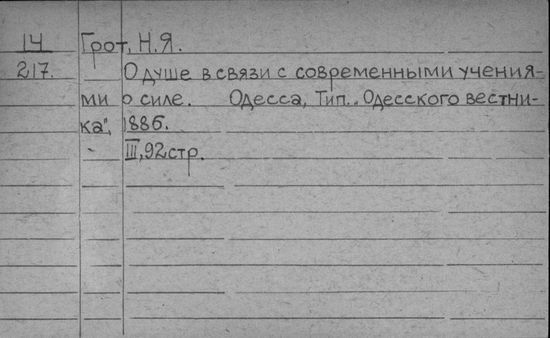 14 Грот, Н.Я.
217. О душе в связи с современными учения-
ми о силе. Одесса, Тип. „Одесского вестни-
ка", 1886.
III, 92 стр.